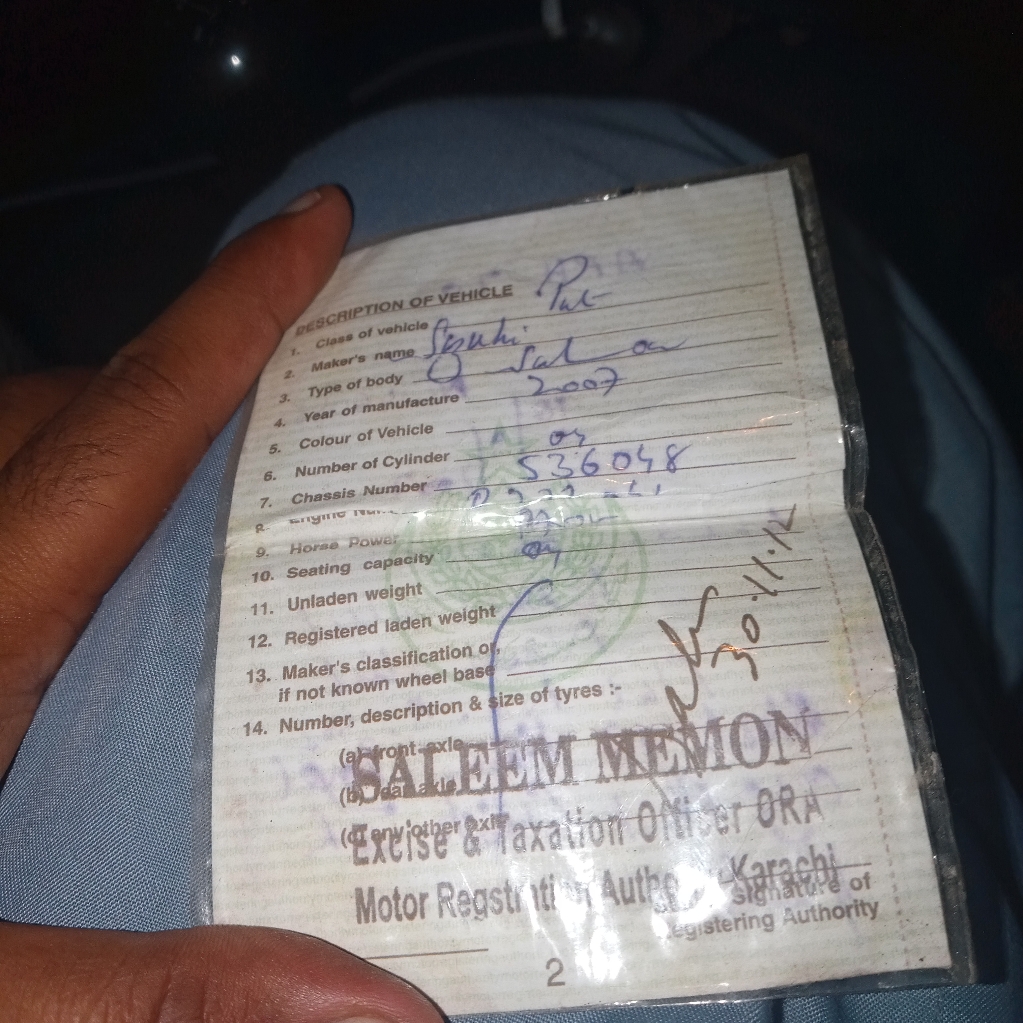 DESCRIPTION OF VEHICLE
1. Class of vehicle Pvt
2. Maker's name Suzuki
3. Type of body Saloon
4. Year of manufacture 2007
5. Colour of Vehicle
6. Number of Cylinder 04
7. Chassis Number 536048
8. Engine
9. Horse Power
10. Seating capacity 04
11. Unladen weight
12. Registered laden weight
13. Maker's classification or,
if not known wheel base
14. Number, description & size of tyres :-
(a) front axle
(b) rear axle
(c) any other axle
30.11.12
SALEEM MEMON
Excise & Taxation Officer ORA
Motor Regstration Authority Karachi
Signature of
Registering Authority
2